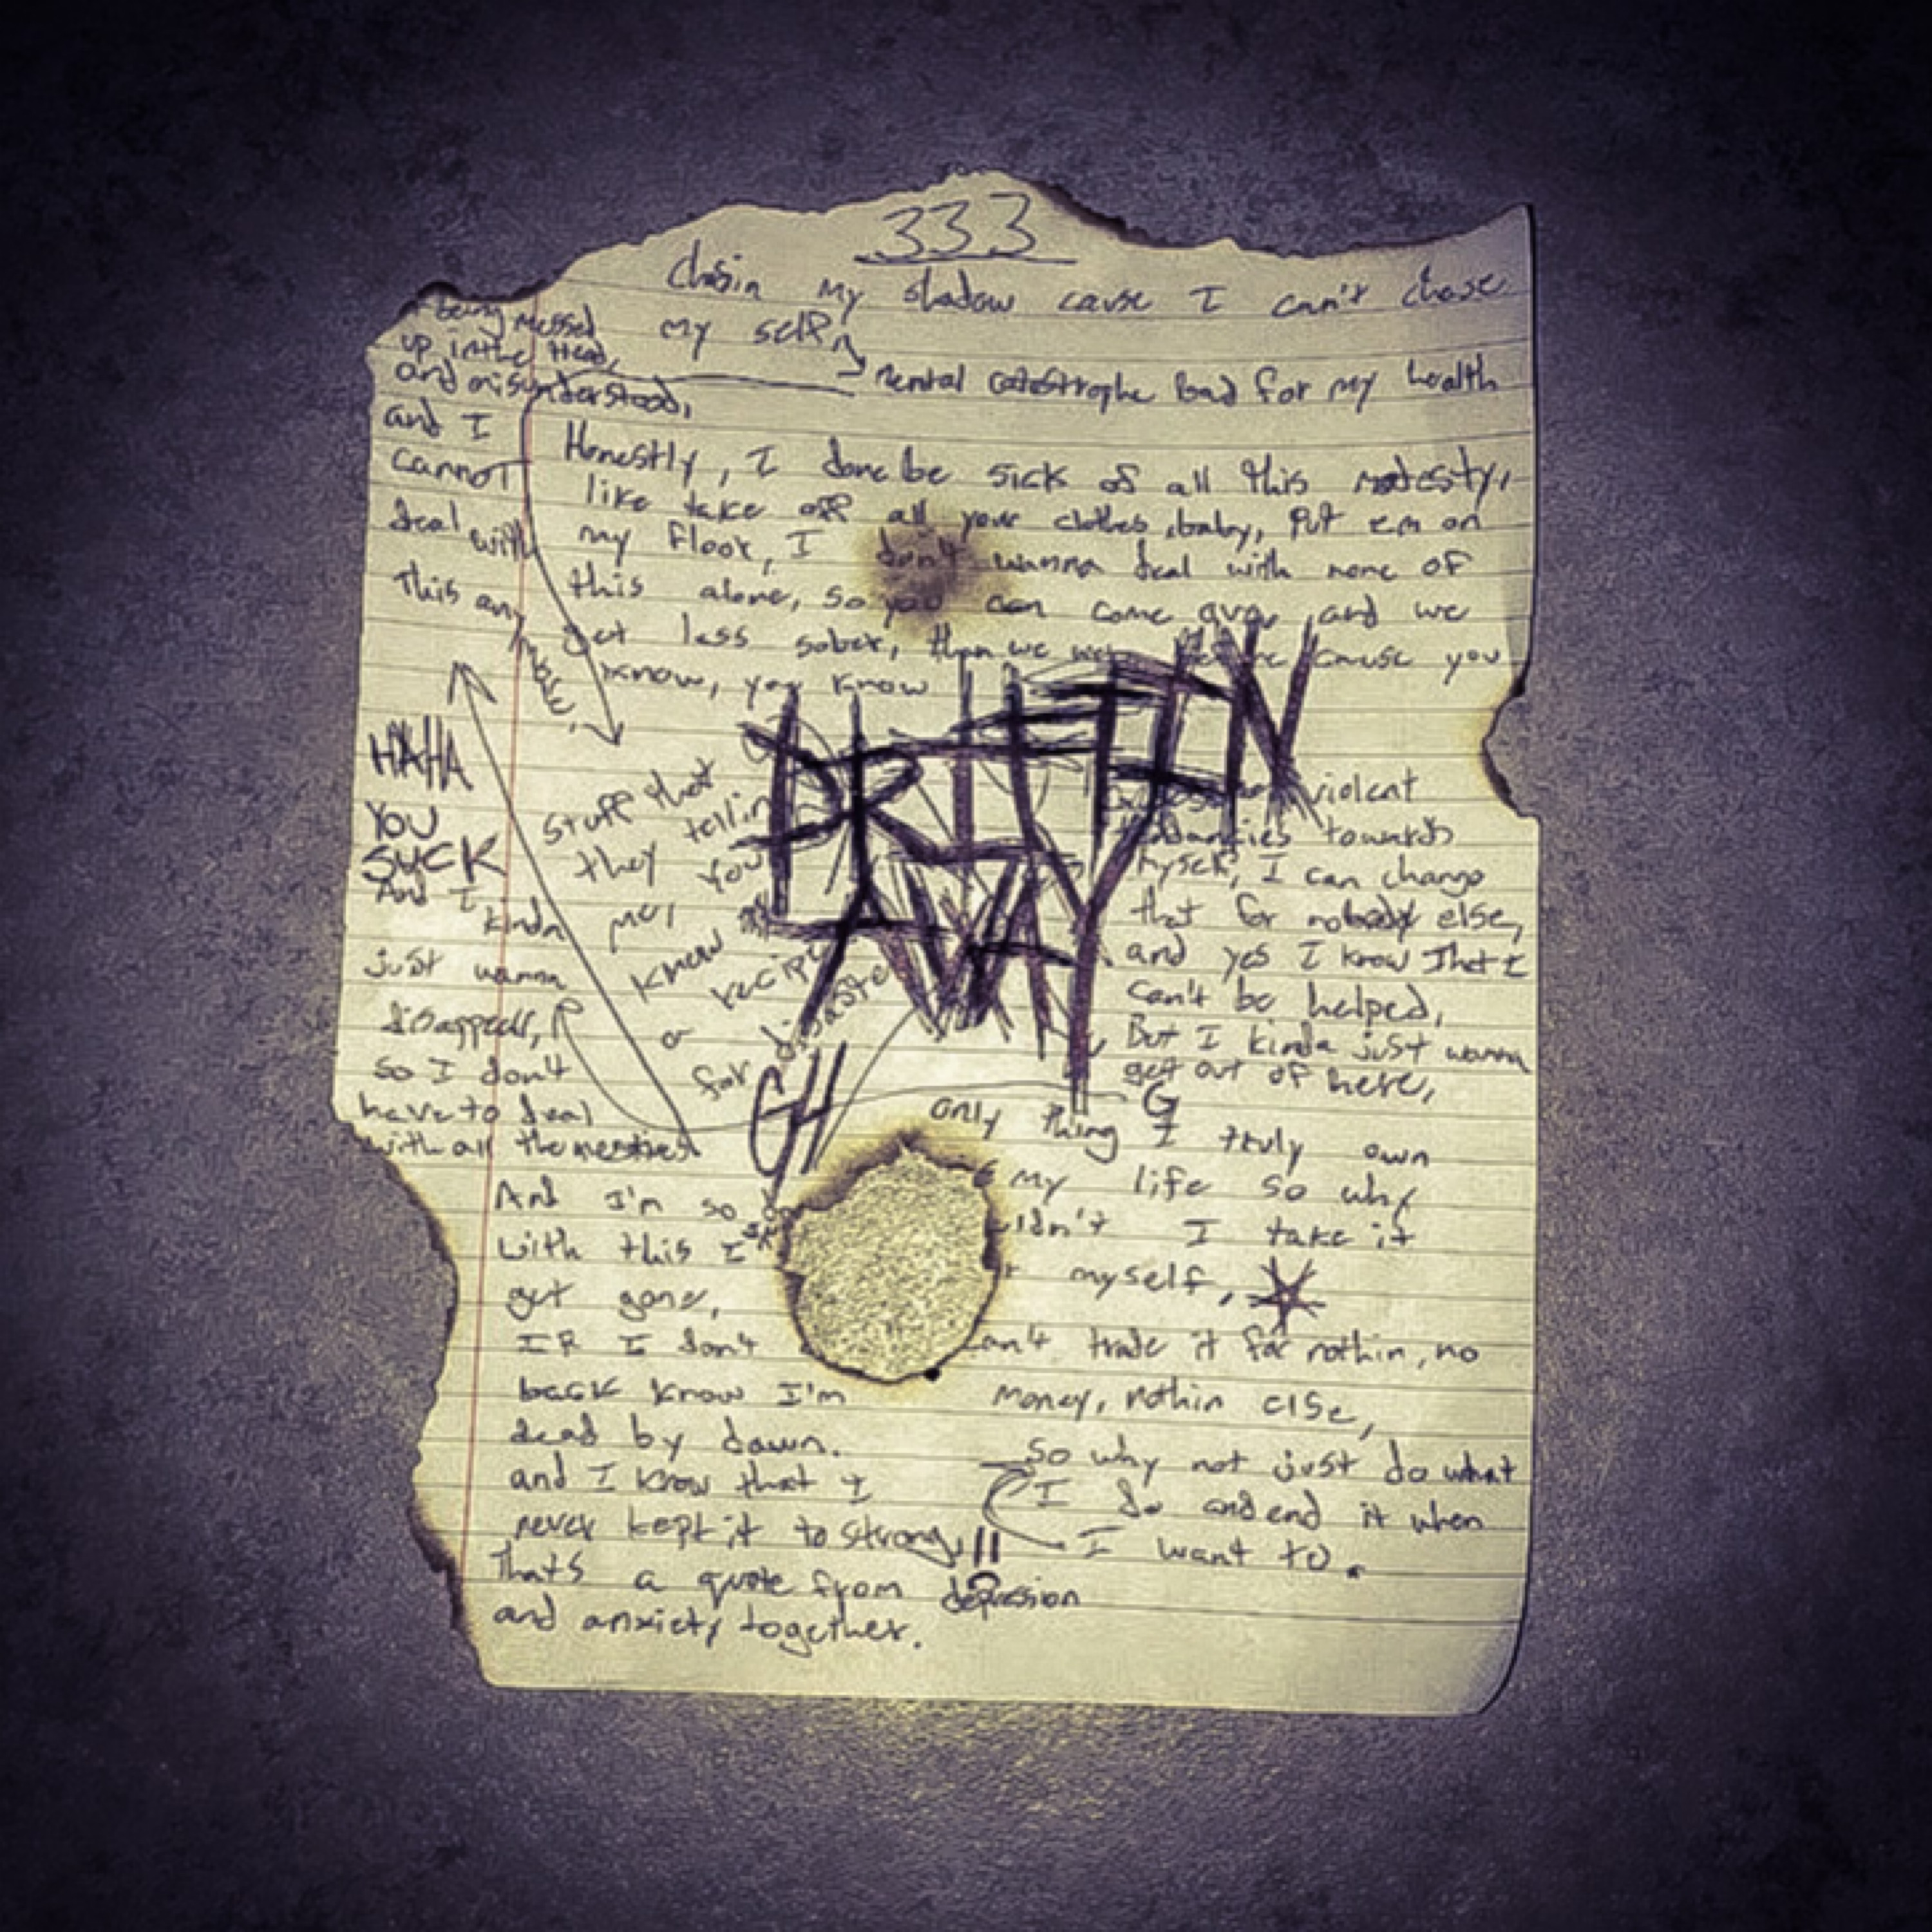 333
Chasin my shadow cause I can't chase
my self,
mental catastrophe bad for my health
being messed
up in the Head,
and misunderstood,
and I
cannot
deal with
This any
more,
Honestly, I done be sick of all this modesty,
like take off all your clothes, baby, Put em on
my floor, I don't wanna deal with none of
this alone, so you can come over, and we
get less sober, than we cause you
know, you know
DRIFTIN
AWAY
HAHA
YOU
SUCK
And I
kinda
just wanna
disappear,
so I don't
have to deal
with all the
stuff that
they tellin
me, You
know
recipe
or
for disaster
GH
violent
towards
myself, I can change
that for nobody else,
and yes I know That I
can't be helped,
But I kinda just wanna
get out of here,
G
only thing I truly own
my life so why
I take it
myself,
can't trade it for nothin, no
money, nothin else,
so why not just do what
I do and end it when
I want to.
And I'm so
with this I
get gone,
If I don't
back know I'm
dead by dawn.
and I know that I
never kept it to strong,"
Thats a quote from depression
and anxiety together.